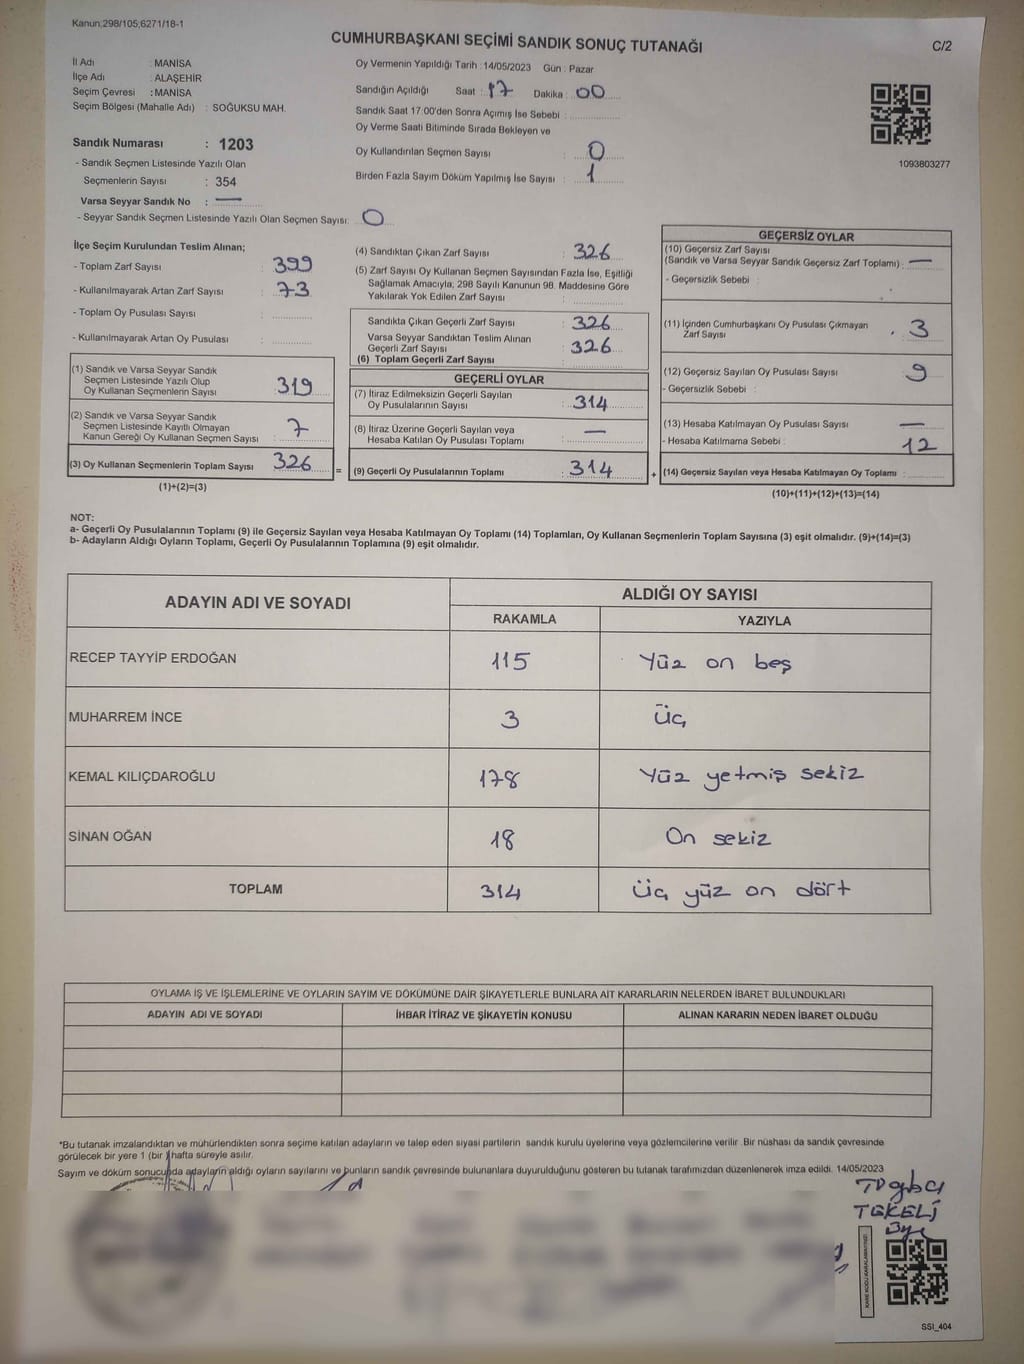 Kanun:298/105;6271/18-1
CUMHURBAŞKANI SEÇİMİ SANDIK SONUÇ TUTANAĞI
C/2
İl Adı : MANİSA
İlçe Adı : ALAŞEHİR
Seçim Çevresi : MANİSA
Seçim Bölgesi (Mahalle Adı) : SOĞUKSU MAH.
Sandık Numarası : 1203
- Sandık Seçmen Listesinde Yazılı Olan
Seçmenlerin Sayısı : 354
Varsa Seyyar Sandık No : —
- Seyyar Sandık Seçmen Listesinde Yazılı Olan Seçmen Sayısı: 0
Oy Vermenin Yapıldığı Tarih :14/05/2023 Gün : Pazar
Sandığın Açıldığı Saat : 17 Dakika : 00
Sandık Saat 17:00'den Sonra Açımış İse Sebebi :
Oy Verme Saati Bitiminde Sırada Bekleyen ve
Oy Kullandırılan Seçmen Sayısı : 0
Birden Fazla Sayım Döküm Yapılmış İse Sayısı : 1
1093803277
İlçe Seçim Kurulundan Teslim Alınan;
- Toplam Zarf Sayısı : 399
- Kullanılmayarak Artan Zarf Sayısı : 73
- Toplam Oy Pusulası Sayısı :
- Kullanılmayarak Artan Oy Pusulası :
(1) Sandık ve Varsa Seyyar Sandık
Seçmen Listesinde Yazılı Olup
Oy Kullanan Seçmenlerin Sayısı : 319
(2) Sandık ve Varsa Seyyar Sandık
Seçmen Listesinde Kayıtlı Olmayan
Kanun Gereği Oy Kullanan Seçmen Sayısı : 7
(3) Oy Kullanan Seçmenlerin Toplam Sayısı : 326 =
(1)+(2)=(3)
(4) Sandıktan Çıkan Zarf Sayısı : 326
(5) Zarf Sayısı Oy Kullanan Seçmen Sayısından Fazla İse, Eşitliği
Sağlamak Amacıyla; 298 Sayılı Kanunun 98. Maddesine Göre
Yakılarak Yok Edilen Zarf Sayısı :
Sandıkta Çıkan Geçerli Zarf Sayısı : 326
Varsa Seyyar Sandıktan Teslim Alınan
Geçerli Zarf Sayısı : 326
(6) Toplam Geçerli Zarf Sayısı :
GEÇERLİ OYLAR
(7) İtiraz Edilmeksizin Geçerli Sayılan
Oy Pusulalarının Sayısı : 314
(8) İtiraz Üzerine Geçerli Sayılan veya
Hesaba Katılan Oy Pusulası Toplamı : —
(9) Geçerli Oy Pusulalarının Toplamı : 314 +
GEÇERSİZ OYLAR
(10) Geçersiz Zarf Sayısı
(Sandık ve Varsa Seyyar Sandık Geçersiz Zarf Toplamı) : —
- Geçersizlik Sebebi :
(11) İçinden Cumhurbaşkanı Oy Pusulası Çıkmayan
Zarf Sayısı : 3
(12) Geçersiz Sayılan Oy Pusulası Sayısı : 9
- Geçersizlik Sebebi :
(13) Hesaba Katılmayan Oy Pusulası Sayısı : —
- Hesaba Katılmama Sebebi : 12
(14) Geçersiz Sayılan veya Hesaba Katılmayan Oy Toplamı :
(10)+(11)+(12)+(13)=(14)
NOT:
a- Geçerli Oy Pusulalarının Toplamı (9) ile Geçersiz Sayılan veya Hesaba Katılmayan Oy Toplamı (14) Toplamları, Oy Kullanan Seçmenlerin Toplam Sayısına (3) eşit olmalıdır. (9)+(14)=(3)
b- Adayların Aldığı Oyların Toplamı, Geçerli Oy Pusulalarının Toplamına (9) eşit olmalıdır.
ADAYIN ADI VE SOYADI
ALDIĞI OY SAYISI
RAKAMLA YAZIYLA
RECEP TAYYİP ERDOĞAN 115 Yüz on beş
MUHARREM İNCE 3 üç
KEMAL KILIÇDAROĞLU 178 Yüz yetmiş sekiz
SİNAN OĞAN 18 On sekiz
TOPLAM 314 üç yüz on dört
OYLAMA İŞ VE İŞLEMLERİNE VE OYLARIN SAYIM VE DÖKÜMÜNE DAİR ŞİKAYETLERLE BUNLARA AİT KARARLARIN NELERDEN İBARET BULUNDUKLARI
ADAYIN ADI VE SOYADI İHBAR İTİRAZ VE ŞİKAYETİN KONUSU ALINAN KARARIN NEDEN İBARET OLDUĞU
*Bu tutanak imzalandıktan ve mühürlendikten sonra seçime katılan adayların ve talep eden siyasi partilerin sandık kurulu üyelerine veya gözlemcilerine verilir. Bir nüshası da sandık çevresinde
görülecek bir yere 1 (bir) hafta süreyle asılır.
Sayım ve döküm sonucunda adayların aldığı oyların sayılarını ve bunların sandık çevresinde bulunanlara duyurulduğunu gösteren bu tutanak tarafımızdan düzenlenerek imza edildi. 14/05/2023
TEKELİ
Üye
SSI_404